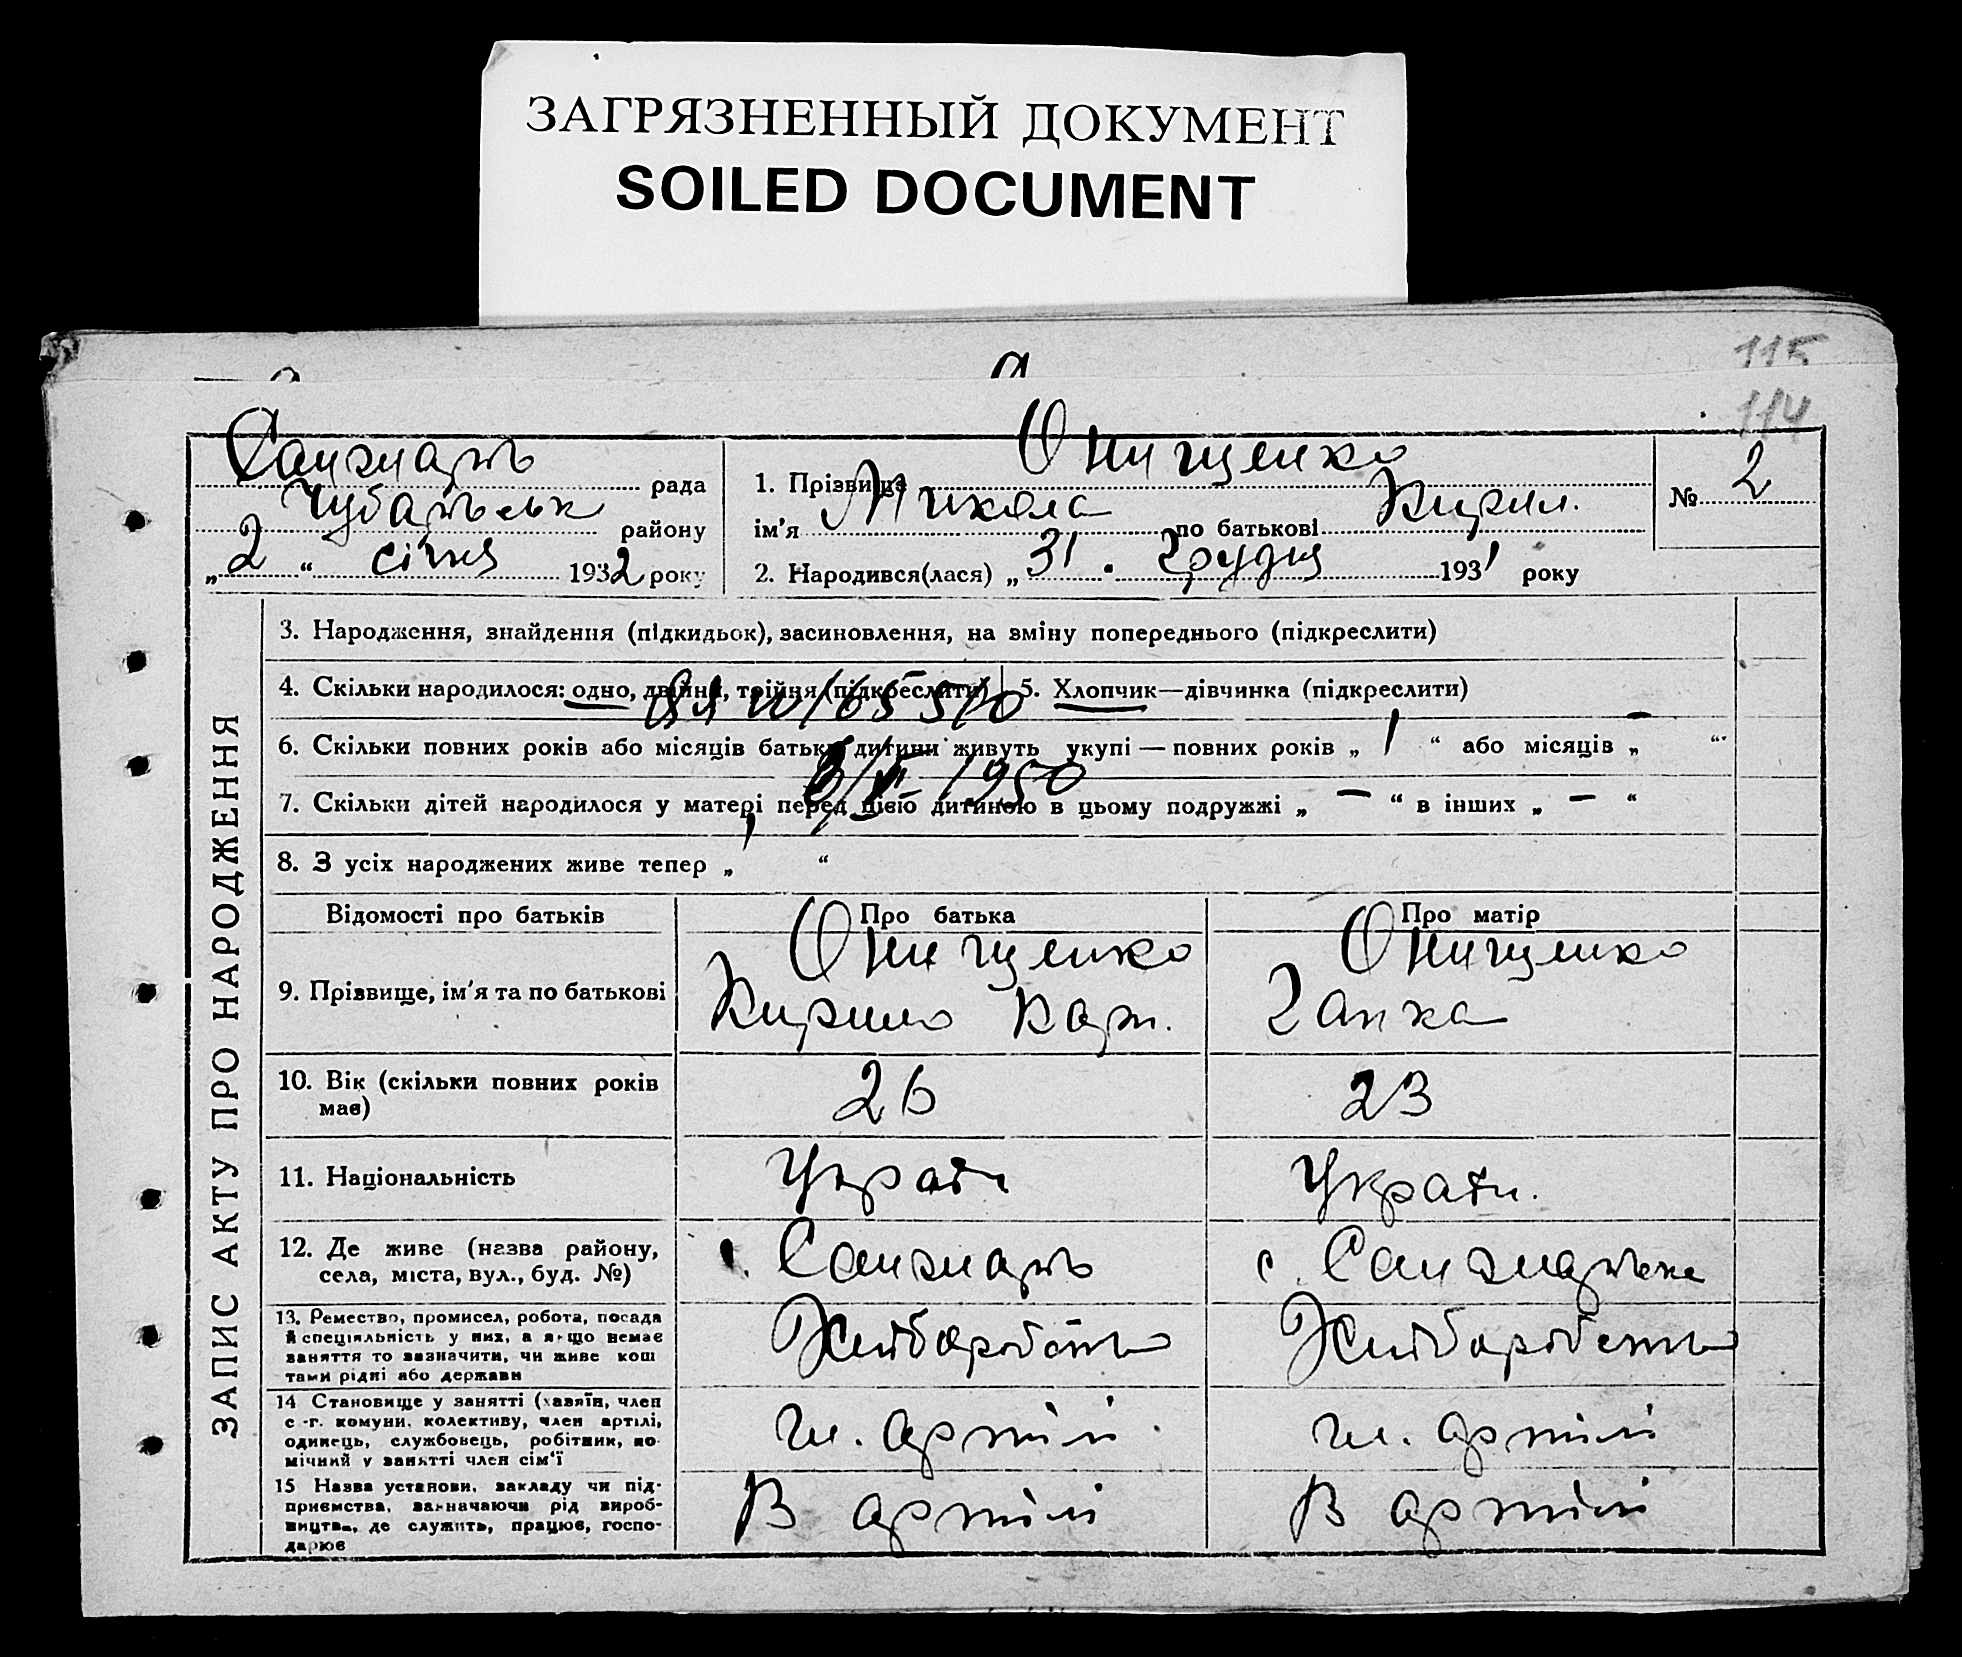 ЗАГРЯЗНЕННЫЙ ДОКУМЕНТ
SOILED DOCUMENT
115
114
рада
району
„ 2 “ січня 1932 року
1. Прізвище Онищенко
ім’я Микола по батькові Кирил.
2. Народився(лася) „ 31 . грудня 1931 року
№ 2
ЗАПИС АКТУ ПРО НАРОДЖЕННЯ
3. Народження, знайдення (підкидьок), засиновлення, на зміну попереднього (підкреслити)
4. Скільки народилося: одно, двійня, трійня (підкреслити)
5. Хлопчик—дівчинка (підкреслити)
6. Скільки повних років або місяців батьки дитини живуть укупі — повних років „ 1 “ або місяців „ — “
1950
7. Скільки дітей народилося у матері перед цією дитиною в цьому подружжі „ — “ в інших „ — “
8. З усіх народжених живе тепер „ 1 “
Відомості про батьків
Про батька
Про матір
9. Прізвище, ім’я та по батькові
Онищенко
Кирило
Онищенко
Ганка
10. Вік (скільки повних років
має)
26
23
11. Національність
Украін
Украін.
12. Де живе (назва району,
села, міста, вул., буд. №)
13. Ремество, промисел, робота, посада
й спеціяльність у них, а якщо немає
заняття то зазначити, чи живе кош
тами рідні або держави
Хлібороботь
Хлібороботь
14 Становище у занятті (хазяїн, член
с -г. комуни, колективу, член артілі,
одинець, службовець, робітник, по
мічний у занятті член сім’ї
чл. артілі
чл. артілі
15 Назва установи, закладу чи під-
приємства, зазначаючи рід вироб-
ництва, де служить, працює, госпо-
дарює
В артілі
В артілі